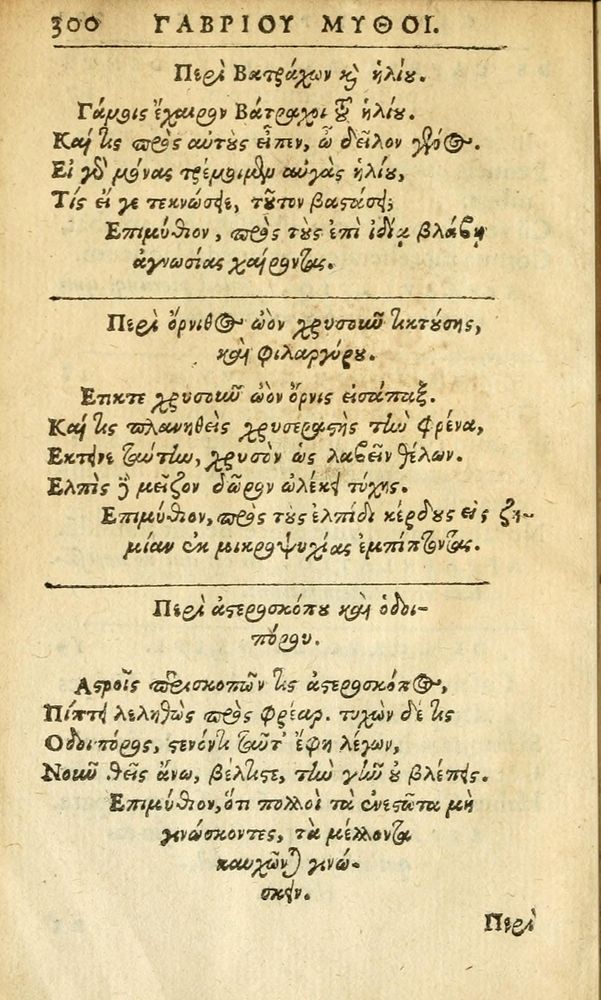 300 ΓΑΒΡΙΟΥ ΜΥΘΟΙ.
Περὶ Βατράχων καὶ ἡλίου.
Γάμοις ἔχαιρον Βάτραχοι τοῦ ἡλίου.
Καί τις πρὸς αὐτοὺς εἶπεν, ὦ δεῖλον γένος.
Εἰ γὰρ μόνας τρέμοιμεν αὐγὰς ἡλίου,
Τίς εἴ γε τεκνώσειε, τοῦτον βαστάσει;
Επιμύθιον, πρὸς τοὺς ἐπὶ ἰδίᾳ βλάβῃ
ἀγνωσίας χαίροντας.
Περὶ ὄρνιθος ὠὸν χρυσοῦν τικτούσης,
καὶ φιλαργύρου.
Ετικτε χρυσοῦν ὠὸν ὄρνις εἰσάπαξ.
Καί τις πλανηθεὶς χρυσεραστὴς τὴν φρένα,
Εκτεινε ταύτην, χρυσὸν ὡς λαβεῖν θέλων.
Ελπὶς δὲ μεῖζον δῶρον ὠλέκει τύχης.
Επιμύθιον, πρὸς τοὺς ἐλπίδι κέρδους εἰς ζη-
μίαν ἐκ μικροψυχίας ἐμπίπτοντας.
Περὶ ἀστεροσκόπου καὶ ὁδοι-
πόρου.
Αστροῖς περισκοπῶν τις ἀστεροσκόπος,
Πίπτει λεληθὼς πρὸς φρέαρ. τυχὼν δέ τις
Οδοιπόρος, στένοντι ταῦτ' ἔφη λέγων,
Νοῦν θεῖς ἄνω, βέλτιστε, τὴν γῆν οὐ βλέπεις.
Επιμύθιον, ὅτι πολλοὶ τὰ ἐνεστῶτα μὴ
γινώσκοντες, τὰ μέλλοντα
καυχῶνται γινώ-
σκειν.
Περὶ